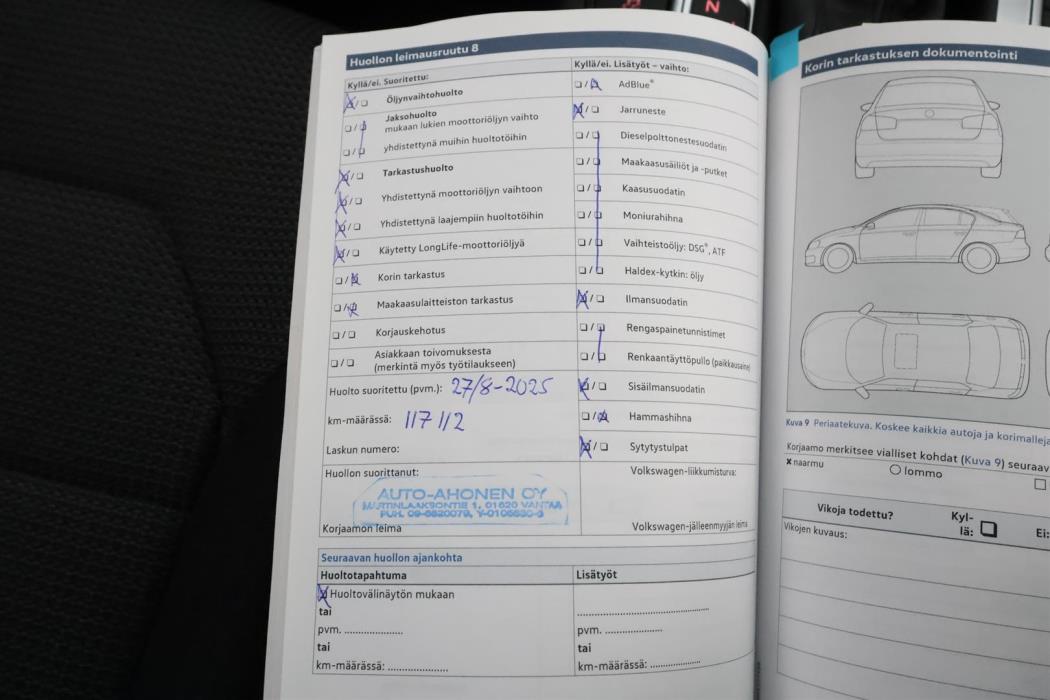 N
Huollon leimausruutu 8
Kyllä/ei. Suoritettu:
Öljynvaihtohuolto
Jaksohuolto
mukaan lukien moottoriöljyn vaihto
yhdistettynä muihin huoltotöihin
Tarkastushuolto
Yhdistettynä moottoriöljyn vaihtoon
Yhdistettynä laajempiin huoltotöihin
Käytetty LongLife-moottoriöljyä
Korin tarkastus
Maakaasulaitteiston tarkastus
Korjauskehotus
Asiakkaan toivomuksesta
(merkintä myös työtilaukseen)
Huolto suoritettu (pvm.): 27/8-2025
km-määrässä: 117 112
Laskun numero:
Huollon suorittanut:
AUTO-AHONEN OY
MARTINLAAKSONTIE 1, 01620 VANTAA
Korjaamon leima
Kyllä/ei. Lisätyöt – vaihto:
AdBlue®
Jarruneste
Dieselpolttonestesuodatin
Maakaasusäiliöt ja -putket
Kaasusuodatin
Moniurahihna
Vaihteistoöljy: DSG®, ATF
Haldex-kytkin: öljy
Ilmansuodatin
Rengaspainetunnistimet
Renkaantäyttöpullo (paikkausaine)
Sisäilmansuodatin
Hammashihna
Sytytystulpat
Volkswagen-liikkumisturva:
Volkswagen-jälleenmyyjän leima
Seuraavan huollon ajankohta
Huoltotapahtuma
Lisätyöt
Huoltovälinäytön mukaan
tai
pvm. ....................
tai
km-määrässä: ....................
pvm. ....................
tai
km-määrässä: ....................
Korin tarkastuksen dokumentointi
Kuva 9 Periaatekuva. Koskee kaikkia autoja ja korimalleja
Korjaamo merkitsee vialliset kohdat (Kuva 9) seuraav
x naarmu
lommo
Vikoja todettu?
Kyl-
lä:
Ei:
Vikojen kuvaus: